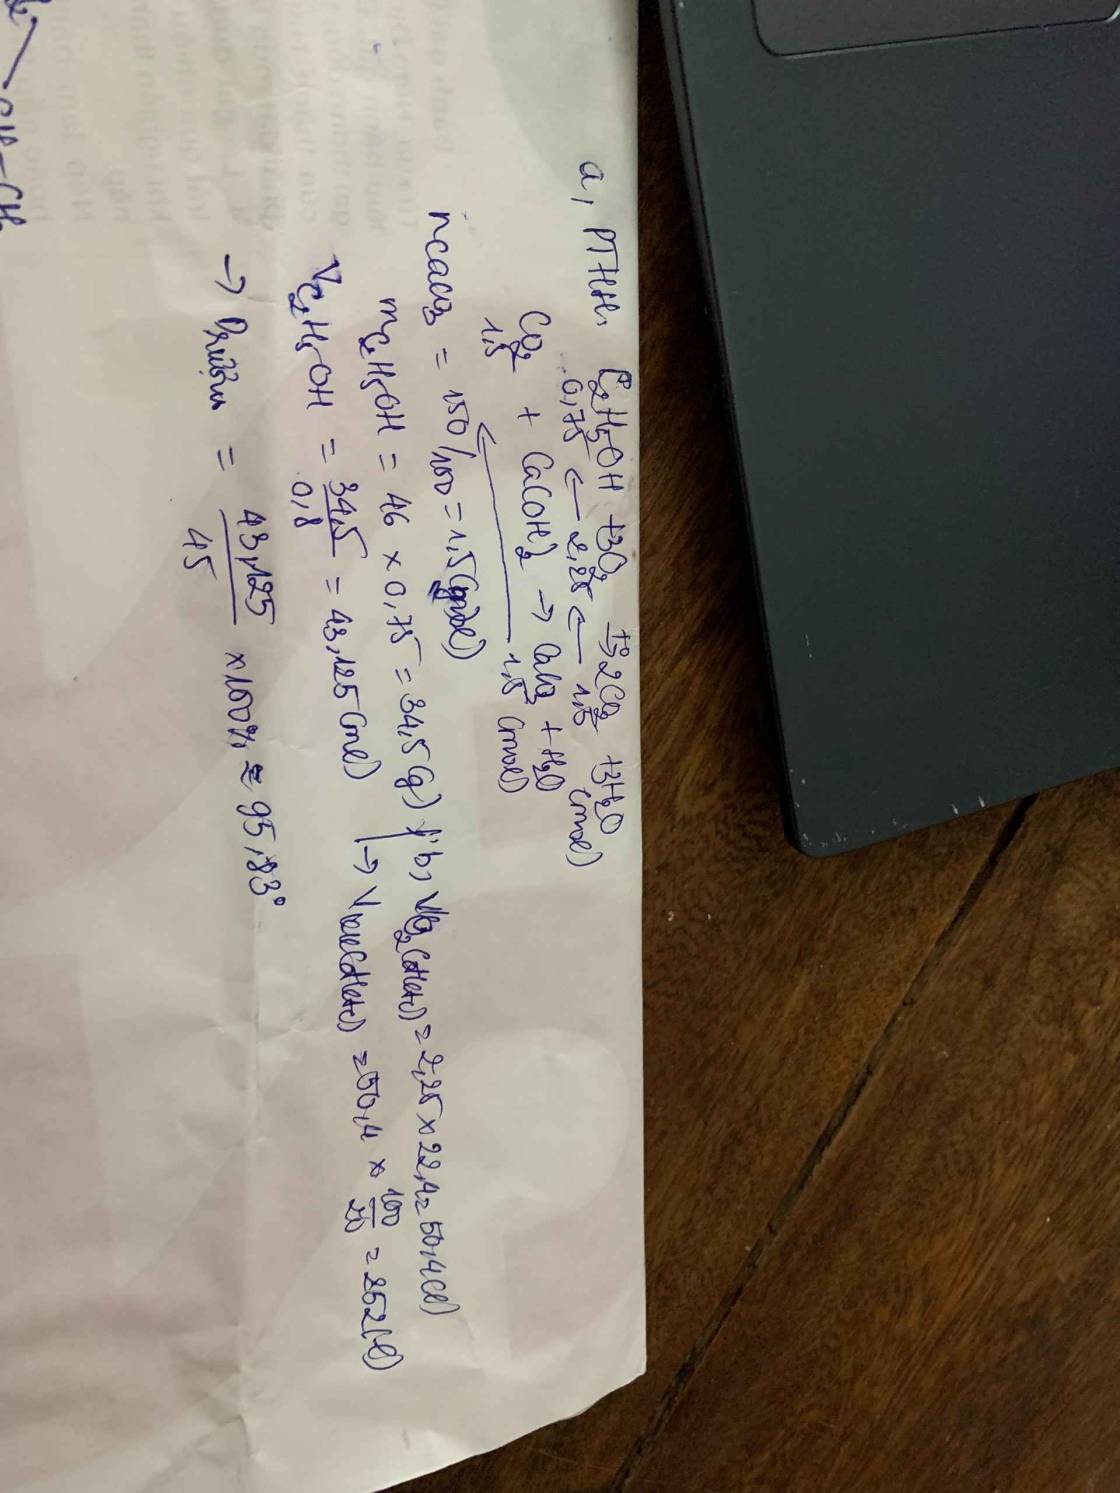 a, PTHH: C₂H₅OH + 3O₂ t°→ 2CO₂ + 3H₂O
0,75 ← 2,25 ← 1,5 (mol)
CO₂ + Ca(OH)₂ → CaCO₃ + H₂O
1,5 ← 1,5 (mol)
nCaCO₃ = 150/100 = 1,5 (mol)
mC₂H₅OH = 46 × 0,75 = 34,5 (g)
VC₂H₅OH = 34,5/0,8 = 43,125 (ml)
→ Drượu = 43,125/45 × 100% ≈ 95,83°
b, VO₂(đktc) = 2,25 × 22,4 = 50,4 (l)
→ Vkk(đktc) = 50,4 × 100/20 = 252 (l)
CH – CH